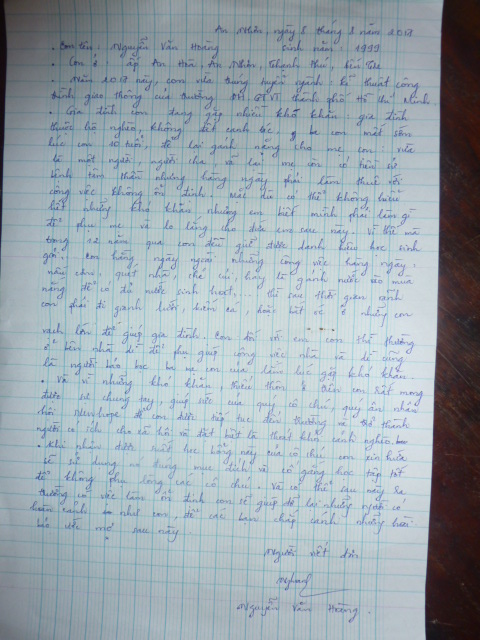 An Nhơn, ngày 8 tháng 8 năm 2017
. Con tên: Nguyễn Văn Hoàng sinh năm 1999
. Con ở: ấp An Hòa, An Nhơn, Thạnh Phú, Bến Tre
. Năm 2017 này, con vừa trúng tuyển ngành: kĩ thuật công
trình giao thông của trường ĐH GTVT thành phố Hồ Chí Minh.
. Gia đình con đang gặp nhiều khó khăn: gia đình
thuộc hộ nghèo, không đất canh tác, ba con mất sớm
lúc con 10 tuổi, để lại gánh nặng cho mẹ con: vừa
là một người người cha, vả lại mẹ con có tiền sử
bệnh tâm thần nhưng hằng ngày phải làm thuê với
công việc không ổn định. Mặc dù có thể không hiểu
hết những khó khăn nhưng em biết mình phải làm gì
để phụ mẹ và lo lắng cho đứa em sau này. Vì thế mà
trong 12 năm qua con đều giữ được danh hiệu học sinh
giỏi. Con hằng ngày ngoài những công việc hằng ngày:
nấu cơm, quét nhà, chẻ củi, hay là gánh nước vào mùa
nắng để có đủ nước sinh hoạt,... thì sau thời gian rảnh
con phải đi giành lưới, kiếm cá, đoác bất ốc ở những con
rạch lớn để giúp gia đình. Con tới và em con thì thường
ở bên nhà dì để phụ giúp công việc nhà và dì cũng
là người bảo bọc ba mẹ con của lắm lúc gặp khó khăn
. Và vì những khó khăn, thiếu thốn ở trên con rất mong
được sự chung tay, giúp sức của quý cô chú, quý ân nhân
hội Newhope để con được tiếp tục đến trường và trở thành
người có ích cho xã hội và đặt biệt là thoát khỏi cảnh nghèo.
. Khi nhận được suất học bổng này của cô chú con xin hứa
sẽ sử dụng nó đúng mục tiêu và cố gắng học tập tốt
để không phụ lòng các cô chú. Và có thể sau này ra
trường có việc làm ổn định con sẽ giúp đỡ lại những người có
hoàn cảnh như con, để các bạn chấp cánh những hoài
bảo ước mơ sau này.
Người viết đơn
Nguyễn Văn Hoàng.